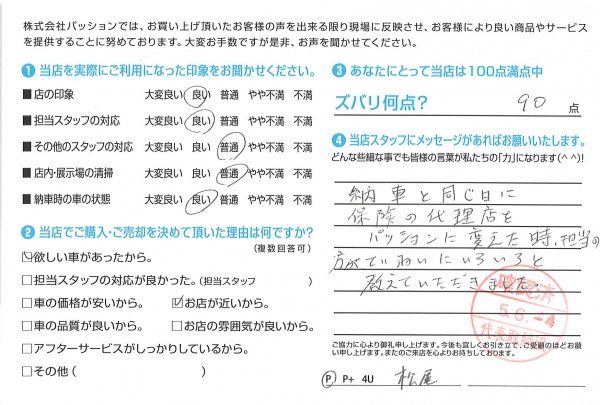 株式会社パッションでは、お買い上げ頂いたお客様の声を出来る限り現場に反映させ、お客様により良い商品やサービス
を提供することに努めております。大変お手数ですが是非、お声を聞かせてください。
❶ 当店を実際にご利用になった印象をお聞かせください。
■店の印象 大変良い 良い 普通 やや不満 不満
■担当スタッフの対応 大変良い 良い 普通 やや不満 不満
■その他のスタッフの対応 大変良い 良い 普通 やや不満 不満
■店内・展示場の清掃 大変良い 良い 普通 やや不満 不満
■納車時の車の状態 大変良い 良い 普通 やや不満 不満
❷ 当店でご購入・ご売却を決めて頂いた理由は何ですか?
(複数回答可)
☑欲しい車があったから。
□担当スタッフの対応が良かった。(担当スタッフ )
□車の価格が安いから。 ☑お店が近いから。
□車の品質が良いから。 □お店の雰囲気が良いから。
□アフターサービスがしっかりしているから。
□その他( )
❸ あなたにとって当店は100点満点中
ズバリ何点? 90 点
❹ 当店スタッフにメッセージがあればお願いいたします。
どんな些細な事でも皆様の言葉が私たちの「力」になります(^^)!
納車と同じ日に
保険の代理店を
パッションに変えた時、担当の
方がていねいにいろいろと
教えていただきました。
確認済
5.6.-4
代表取締役
ご協力に心より御礼申し上げます。今後も宜しくお引き立て、ご愛顧のほどお願
い申し上げます。またのご来店を心よりお待ちしております。
P P+ 4U 松尾